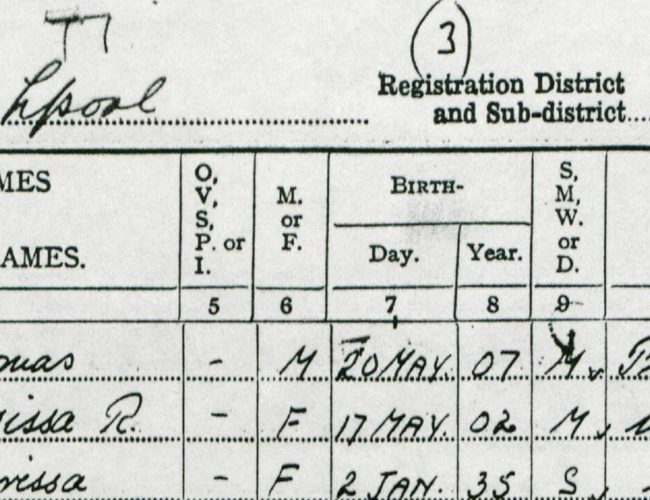 77
3
Lpool
Registration District
and Sub-district
MES
AMES.
O, V, S, P. or I.
M. or F.
BIRTH-
Day.
Year.
S, M, W. or D.
5 6 7 8 9
mas - M 20 MAY. 07 M
issa R. - F 17 MAY. 02 M
rissa - F 2 JAN. 35 S